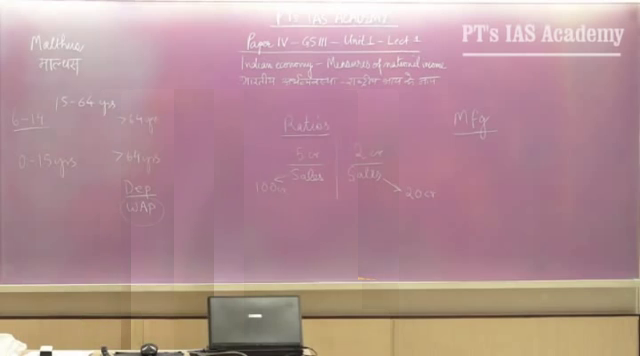 PT's IAS ACADEMY
PT's IAS Academy
Paper IV – GS III – Unit 1 – Lect 1
Indian economy – Measures of national income
Malthus
माल्थस
15–64 yrs
6–14
>64 yr
0–15 yrs
>64 yrs
Dep
WAP
Ratios
5 cr
Sales
100 cr
2 cr
Sales
20 cr
Mfg